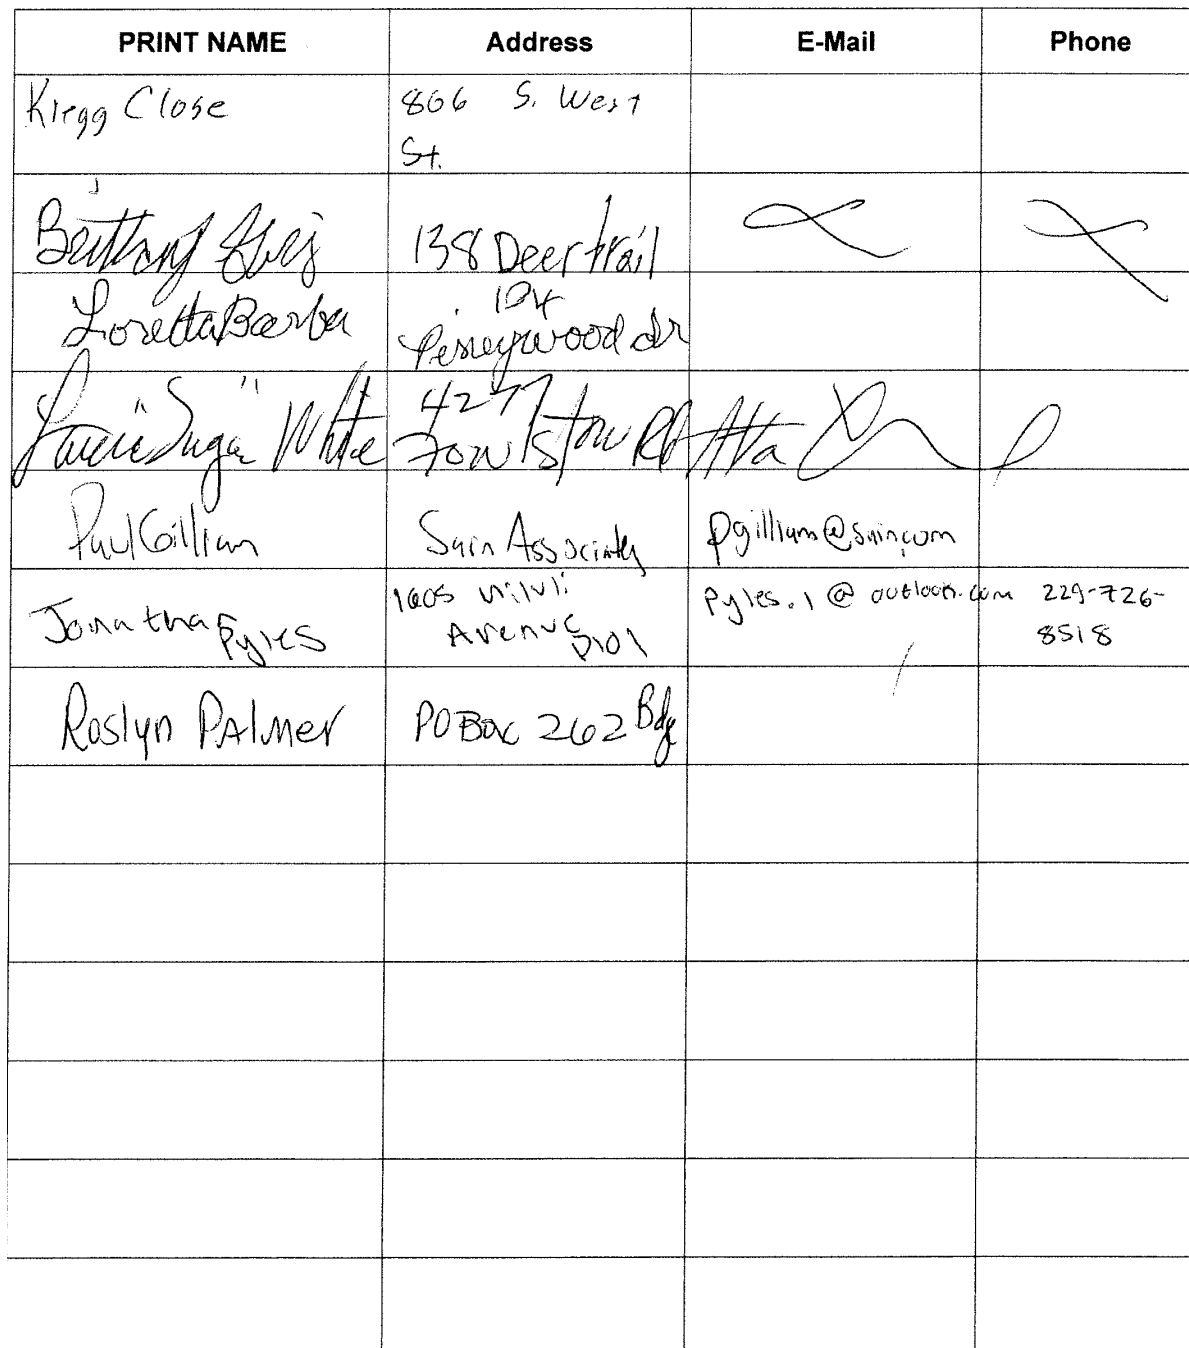 PRINT NAME Address E-Mail Phone
Kregg Close 806 S. West
St.
Brittany 138 Deer trail
Loretta Barber 104
Pineywood dr
"Suga" White 4277
Fowlstown Rd Atta
Paul Gilliam Sain Associates pgilliam@sain.com
Jonathan Pyles 1605 Avenue D101 pyles.j@outlook.com 229-726-
8518
Roslyn PAlmer PO Box 262 Bdg